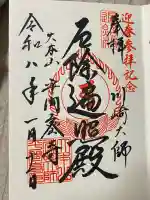 迎春参拝記念
奉拝
川崎大師
厄除遍照殿
大本山
平間寺
令和八年一月十日